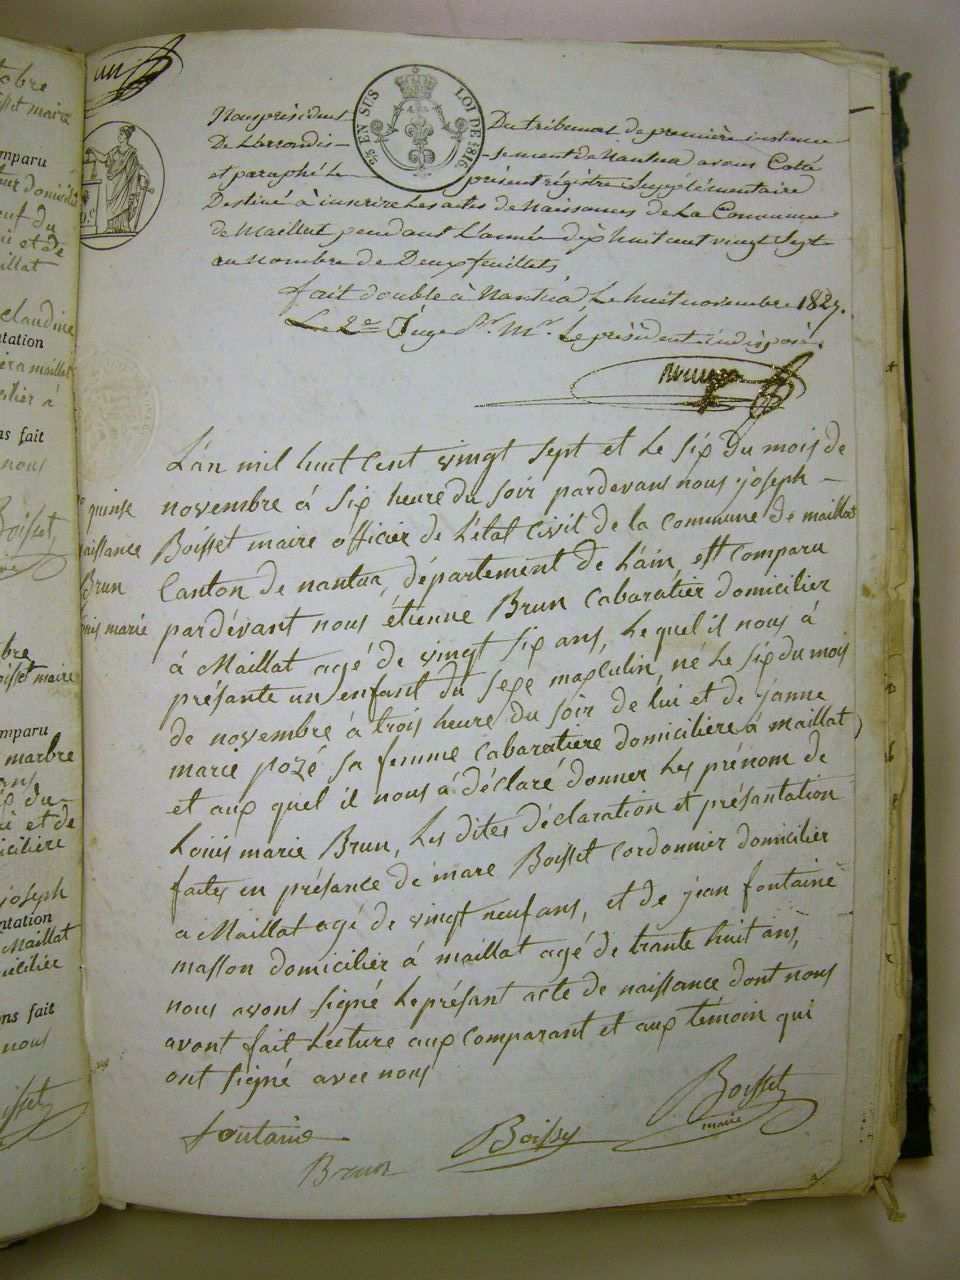 tobre
isset maire
mparu
eur domicilié
euf du
ui et de
aillat
claudine
ntation
era maillat
cilier à
ns fait
nous
Boisset
maire
bre
oisset maire
mparu
marbre
ans
du
ui et de
icilière
joseph
ntation
Maillat
icilier
ns fait
nous
isset
5e EN SUS LOI DE 1816
Nous président Du tribunal de première instance
De L'arrondis- -sement de Nantua avons Coté
et paraphé le présent régistre Supplémentaire
Destiné à inscrire Les actes de Naissances de La Commune
de Maillat pendant L'année dix huit cent vingt Sept
au nombre de Deux feuillets,
fait double à Nantua, Le huit novembre 1827.
Le 2e Juge Pr. Mr. Le président indisposé.
quinse
aissance
Brun
ouis marie
L'an mil huit Cent vingt sept et Le six Du mois de
novembre à six heure du soir pardevans nous joseph -
Boisset maire officier de L'état Civil de la Commune de maillat
Canton de nantua, département de L'ain, est comparu
pardévant nous étienne Brun Cabaratier domicilier
à Maillat agé de vingt six ans, Lequel il nous à
présante un enfant du sexe masculin né Le six du mois
de novembre à trois heure du soir de Lui et de janne
marce pozé sa femme Cabaratière domicilière à maillat
et aux quel il nous à déclaré donner Les prénom de
Louis marie Brun, Les dites déclaration et présantation
faites en présance de marc Boisset Cordonnier domicilier
a Maillat agé de vingt neuf ans, et de jean fontaine
masson domicilier à maillat agé de trante huit ans,
nous avons signé Le présant acte de naissance dont nous
avont fait Lecture aux comparant et aux témoin qui
ont signé avec nous
fontaine Boissy Boisset
maire
Brun